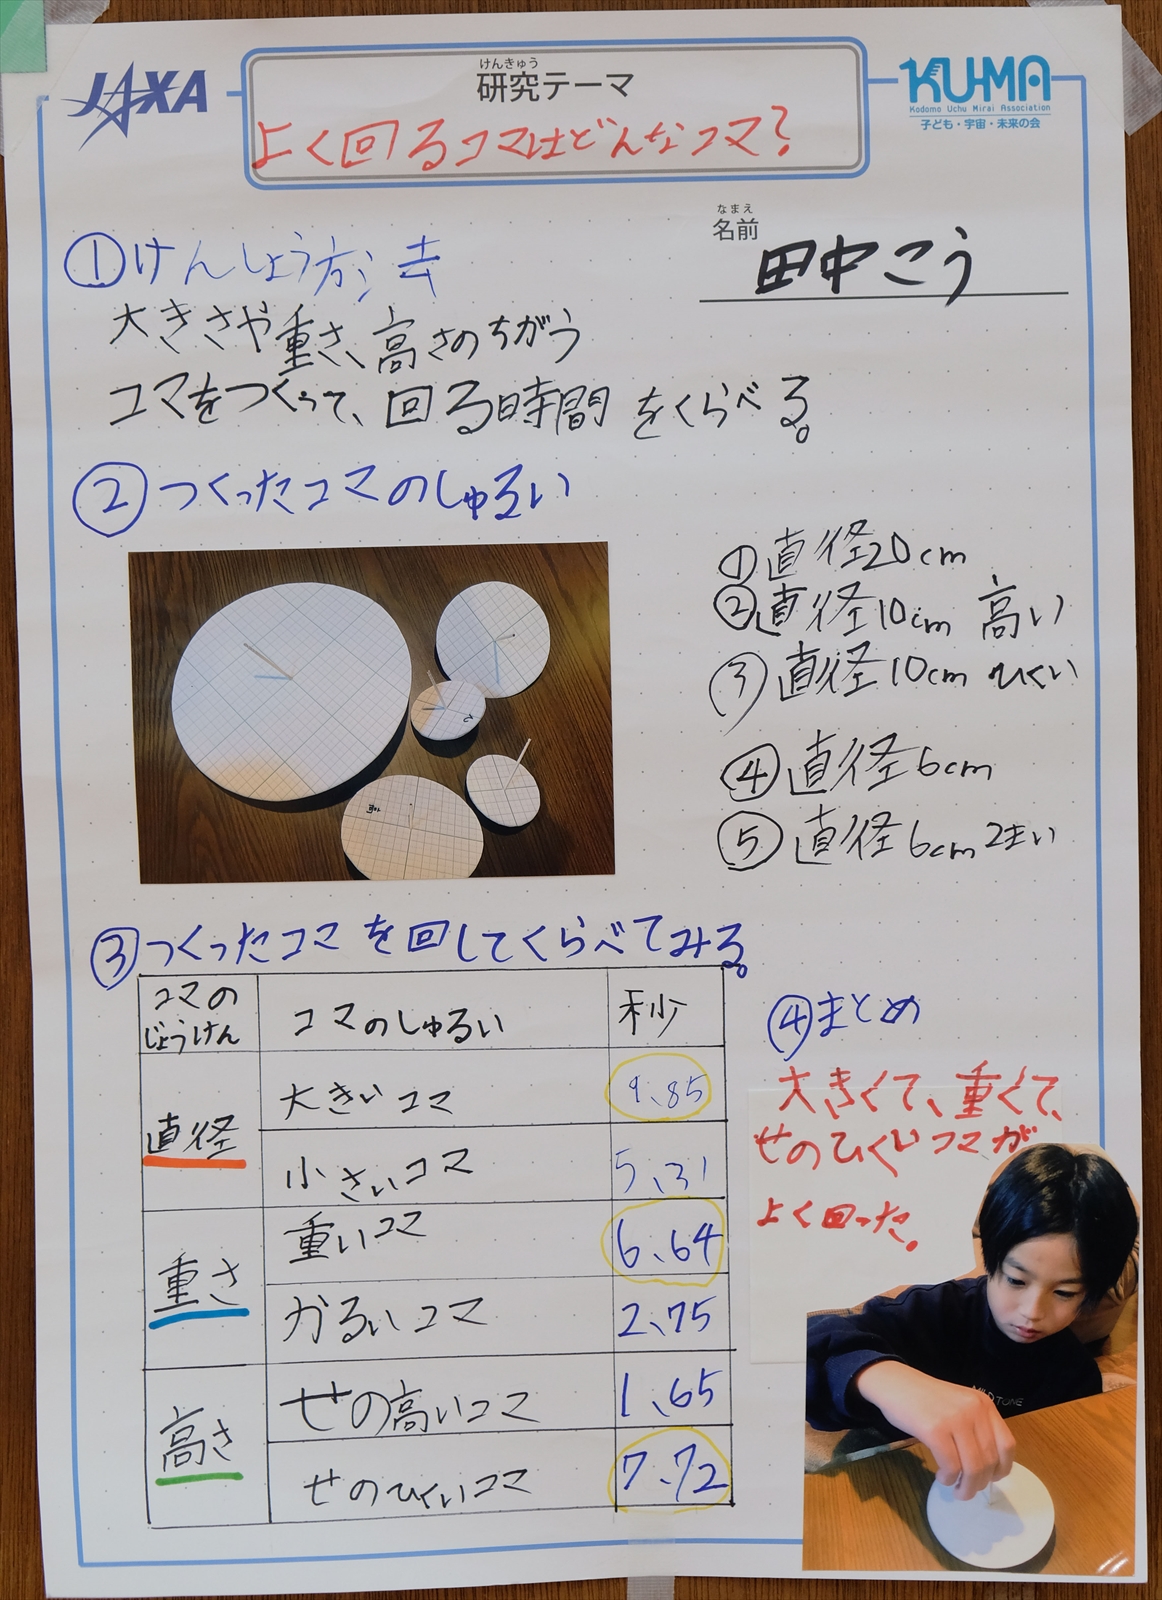 JAXA
けんきゅう
研究テーマ
よく回るコマはどんなコマ?
KU-MA
Kodomo Uchu Mirai Association
子ども・宇宙・未来の会
なまえ
名前
田中こう
①けんしょう方法
大きさや重さ、高さのちがう
コマをつくって、回る時間をくらべる。
②つくったコマのしゅるい
①直径20cm
②直径10cm 高い
③直径10cm ひくい
④直径6cm
⑤直径6cm2まい
③つくったコマを回してくらべてみる。
コマの
じょうけん
コマのしゅるい
秒
直径
大きいコマ
9、85
小さいコマ
5、31
重さ
重いコマ
6、64
かるいコマ
2、75
高さ
せの高いコマ
1、65
せのひくいコマ
7、72
④まとめ
大きくて、重くて、
せのひくいコマが
よく回った。